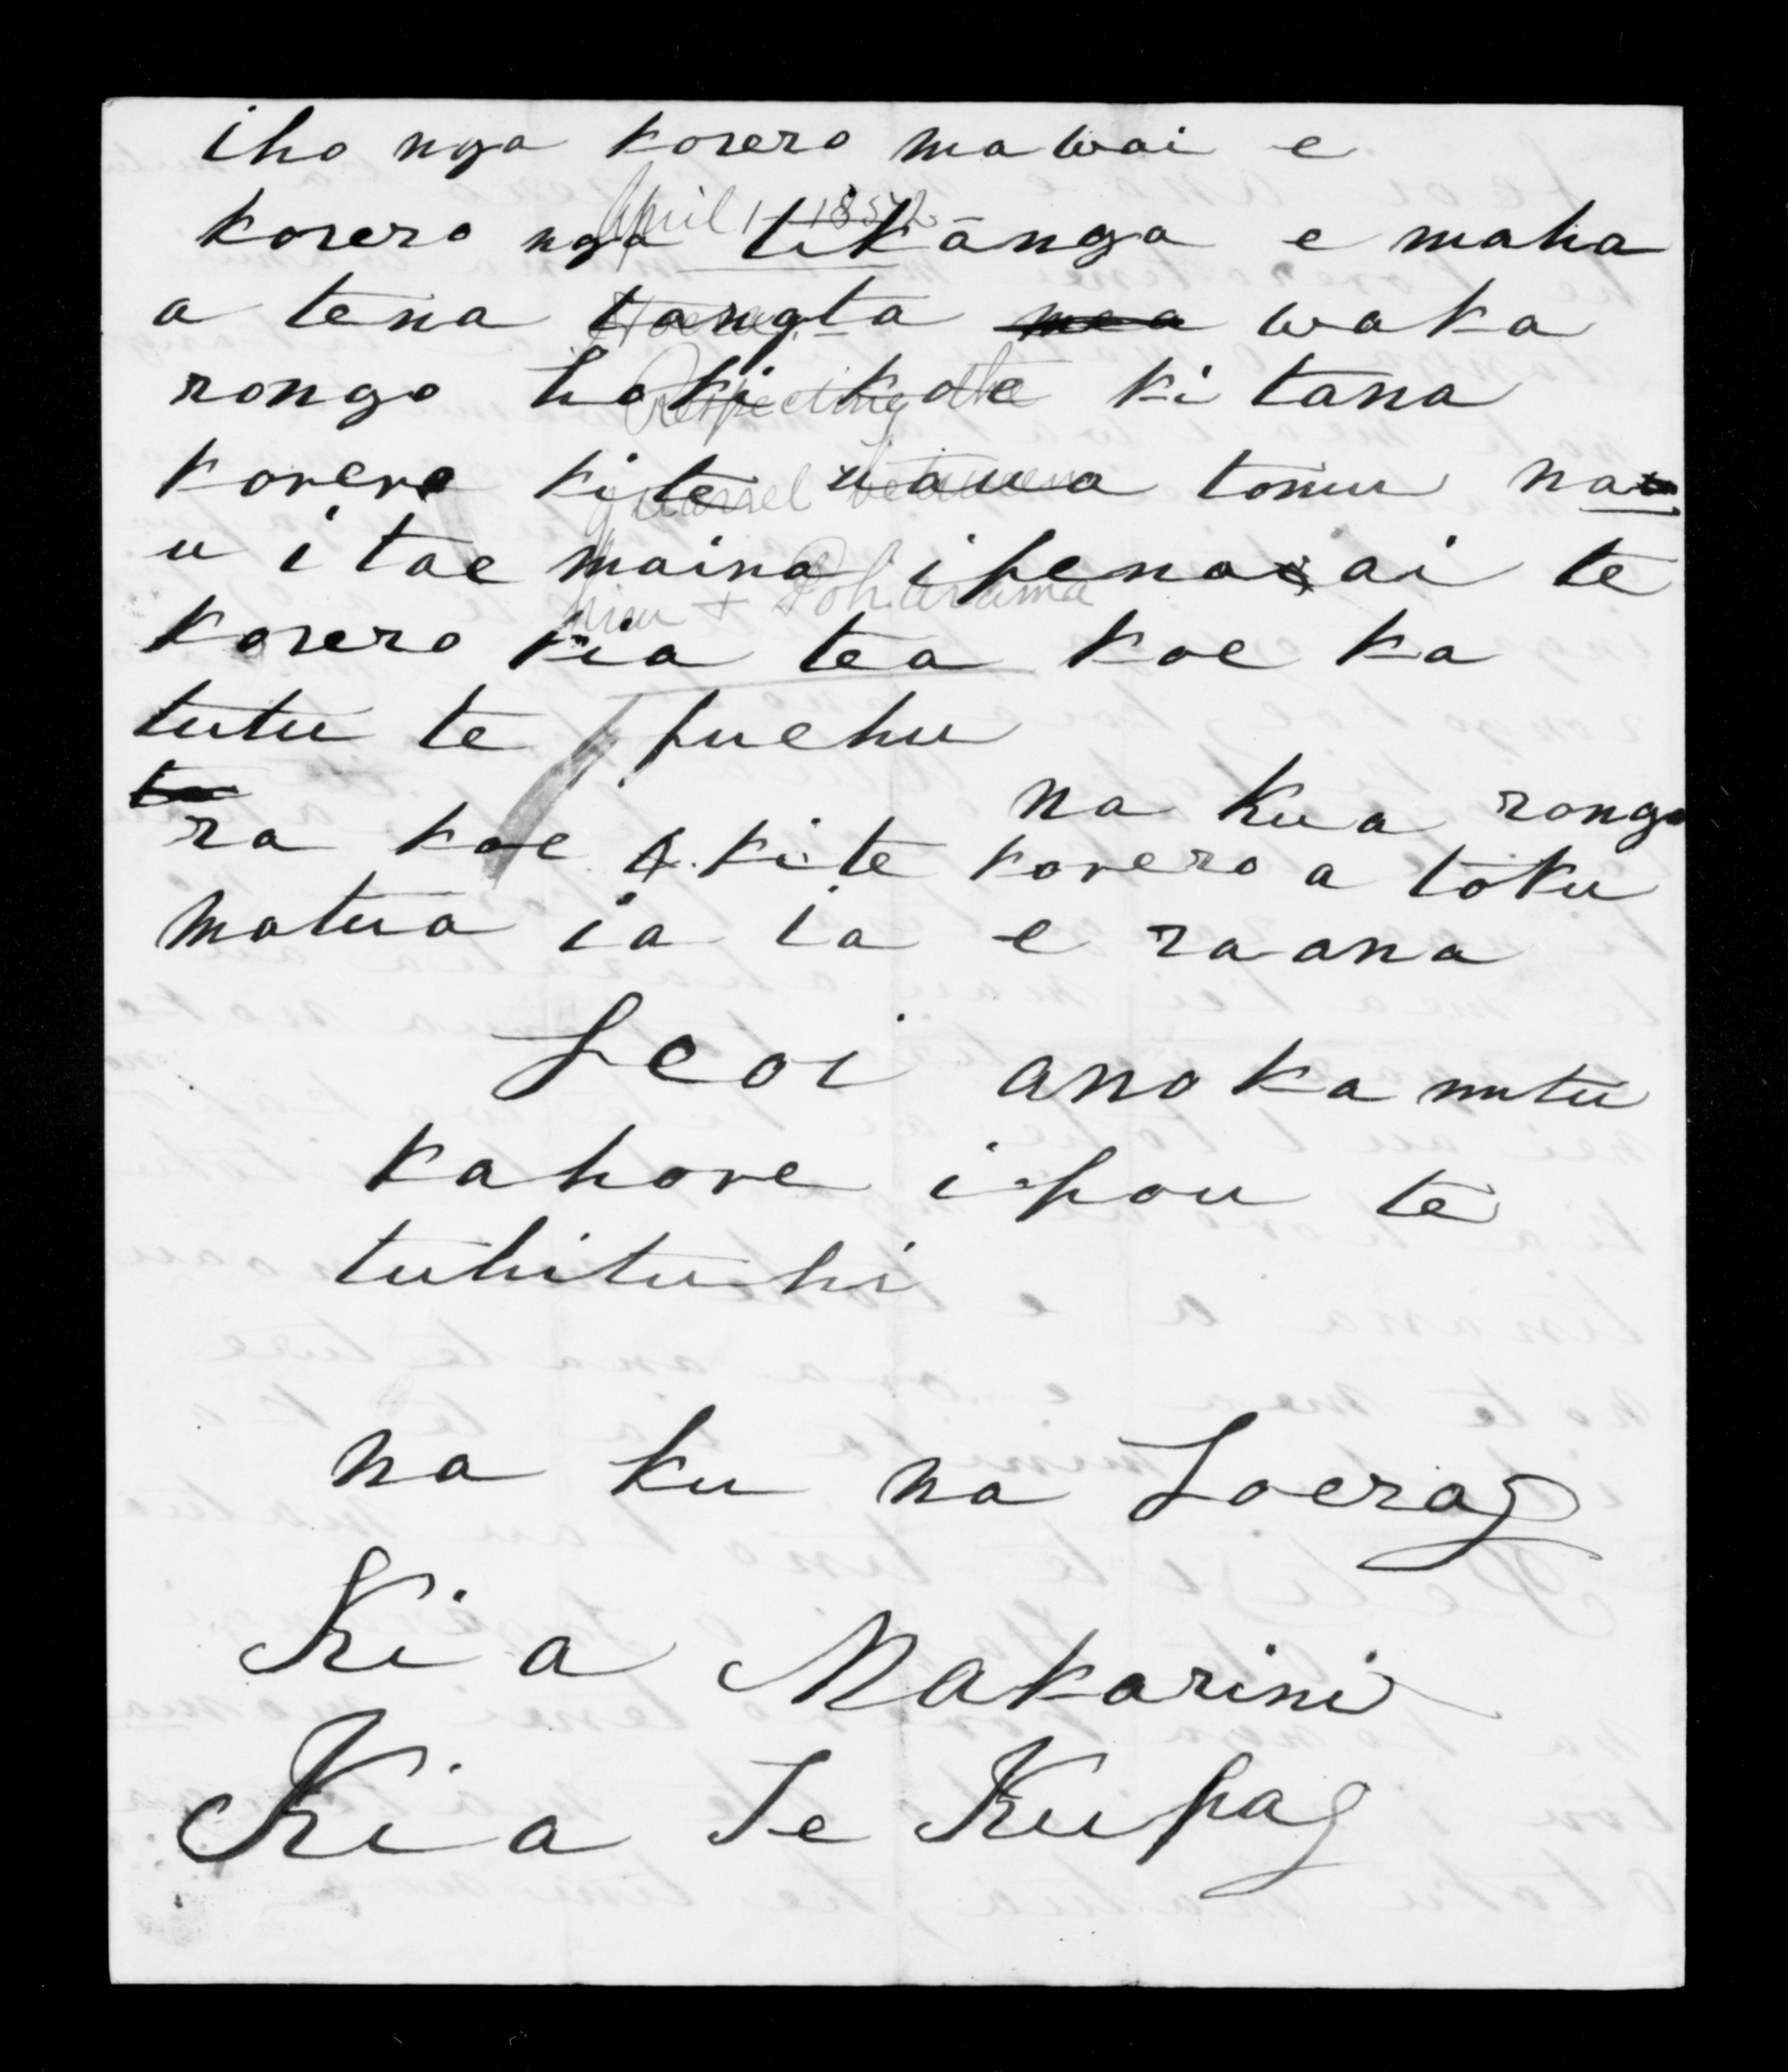 iho nga korero ma wai e
korero nga tikanga e maha
a tena tangta mea waka
rongo hoki koe ki tana
korero kite uaua tonu na
u i tae maina i pena ai te
korero kia tea koe ka
tutu te puehu
na kua rongo
ra koe kite korero a toku
matua ia ia e ra ana
Heoi ano ka mutu
kahore i pou te
tuhituhi
na ku na Hoera
Kia Makarini
Kia Te Kupa
April 1 1852
Hoera
Respecting the
quarrel between
him + Poharama